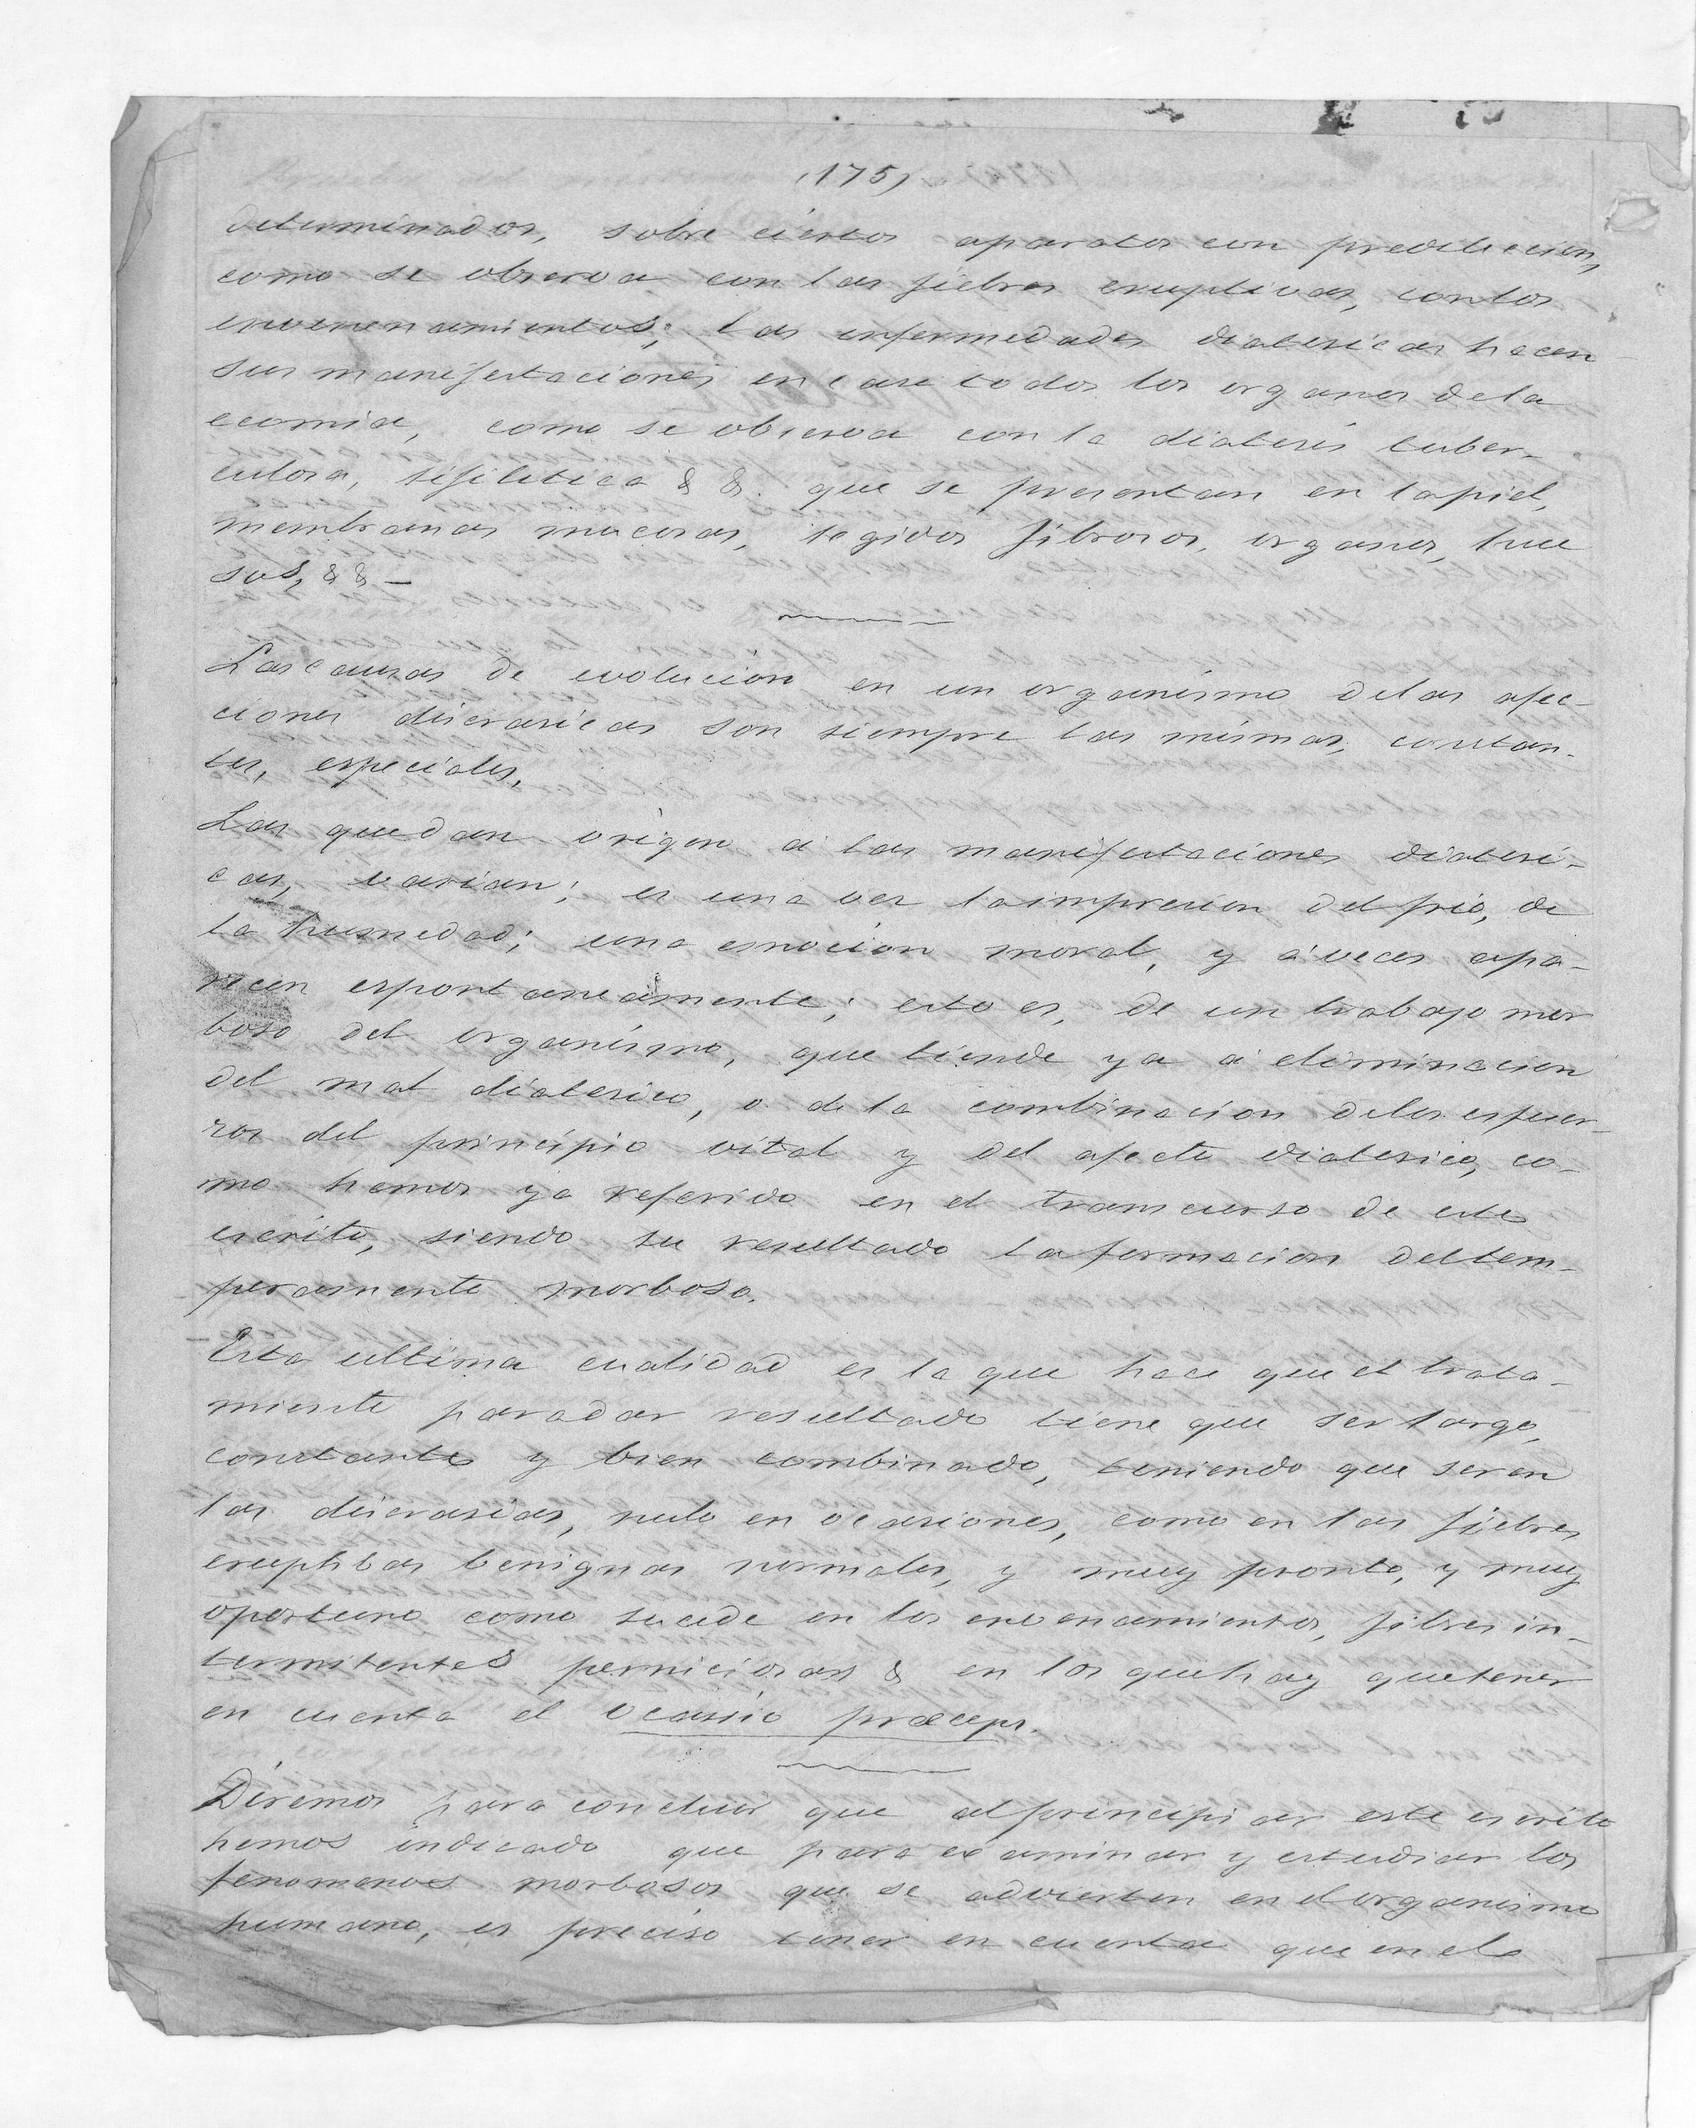 (175)
determinados, sobre ciertos aparatos con predileccion,
como se observa con las fiebres eruptivas, con los
envenenamientos; las enfermedades diatesicas hacen
sus manifestaciones en casi todos los organos de la
ecomia, como se observa con la diatesis tuber-
culosa, sifilitica & &. que se presentan en la piel,
membranas mucosas, tegidos fibrosos, organos, hue
sos, & & —
Las causas de evolución en un organismo de las afec-
ciones discrasicas son siempre las mismas, constan-
tes, especiales.
Las que dan origen a las manifestaciones diatesi-
cas, varian; es una vez la impresion del frio, de
la humedad; una emocion moral, y á veces apa-
recen espontaneamente; esto es, de un trabajo mor
boso del organismo, que tiende ya a eliminacion
del mal diatesico, o de la combinacion de los esfuer-
zos del principio vital y del afecto diatesico, co-
mo hemos ya referido en el transcurso de este
escrito, siendo su resultado la formacion del tem-
peramento morboso.
Esta ultima cualidad es la que hace que el trata-
miento para dar resultado tiene que ser largo,
constante y bien combinado, teniendo que ser en
las discrasias, nulo en ocasiones, como en las fiebres
eruptivas benignas normales, y muy pronto, y muy
oportuno como sucede en los envenamientos, fibres in-
termitentes perniciosas & en los que hay que tener
en cuenta el ocassio præceps.
Diremos para concluir que al principiar este escrito
hemos indicado que para examinar y estudiar los
fenomenos morbosos que se advierten en el organismo
humano, es preciso tener en cuenta que en el